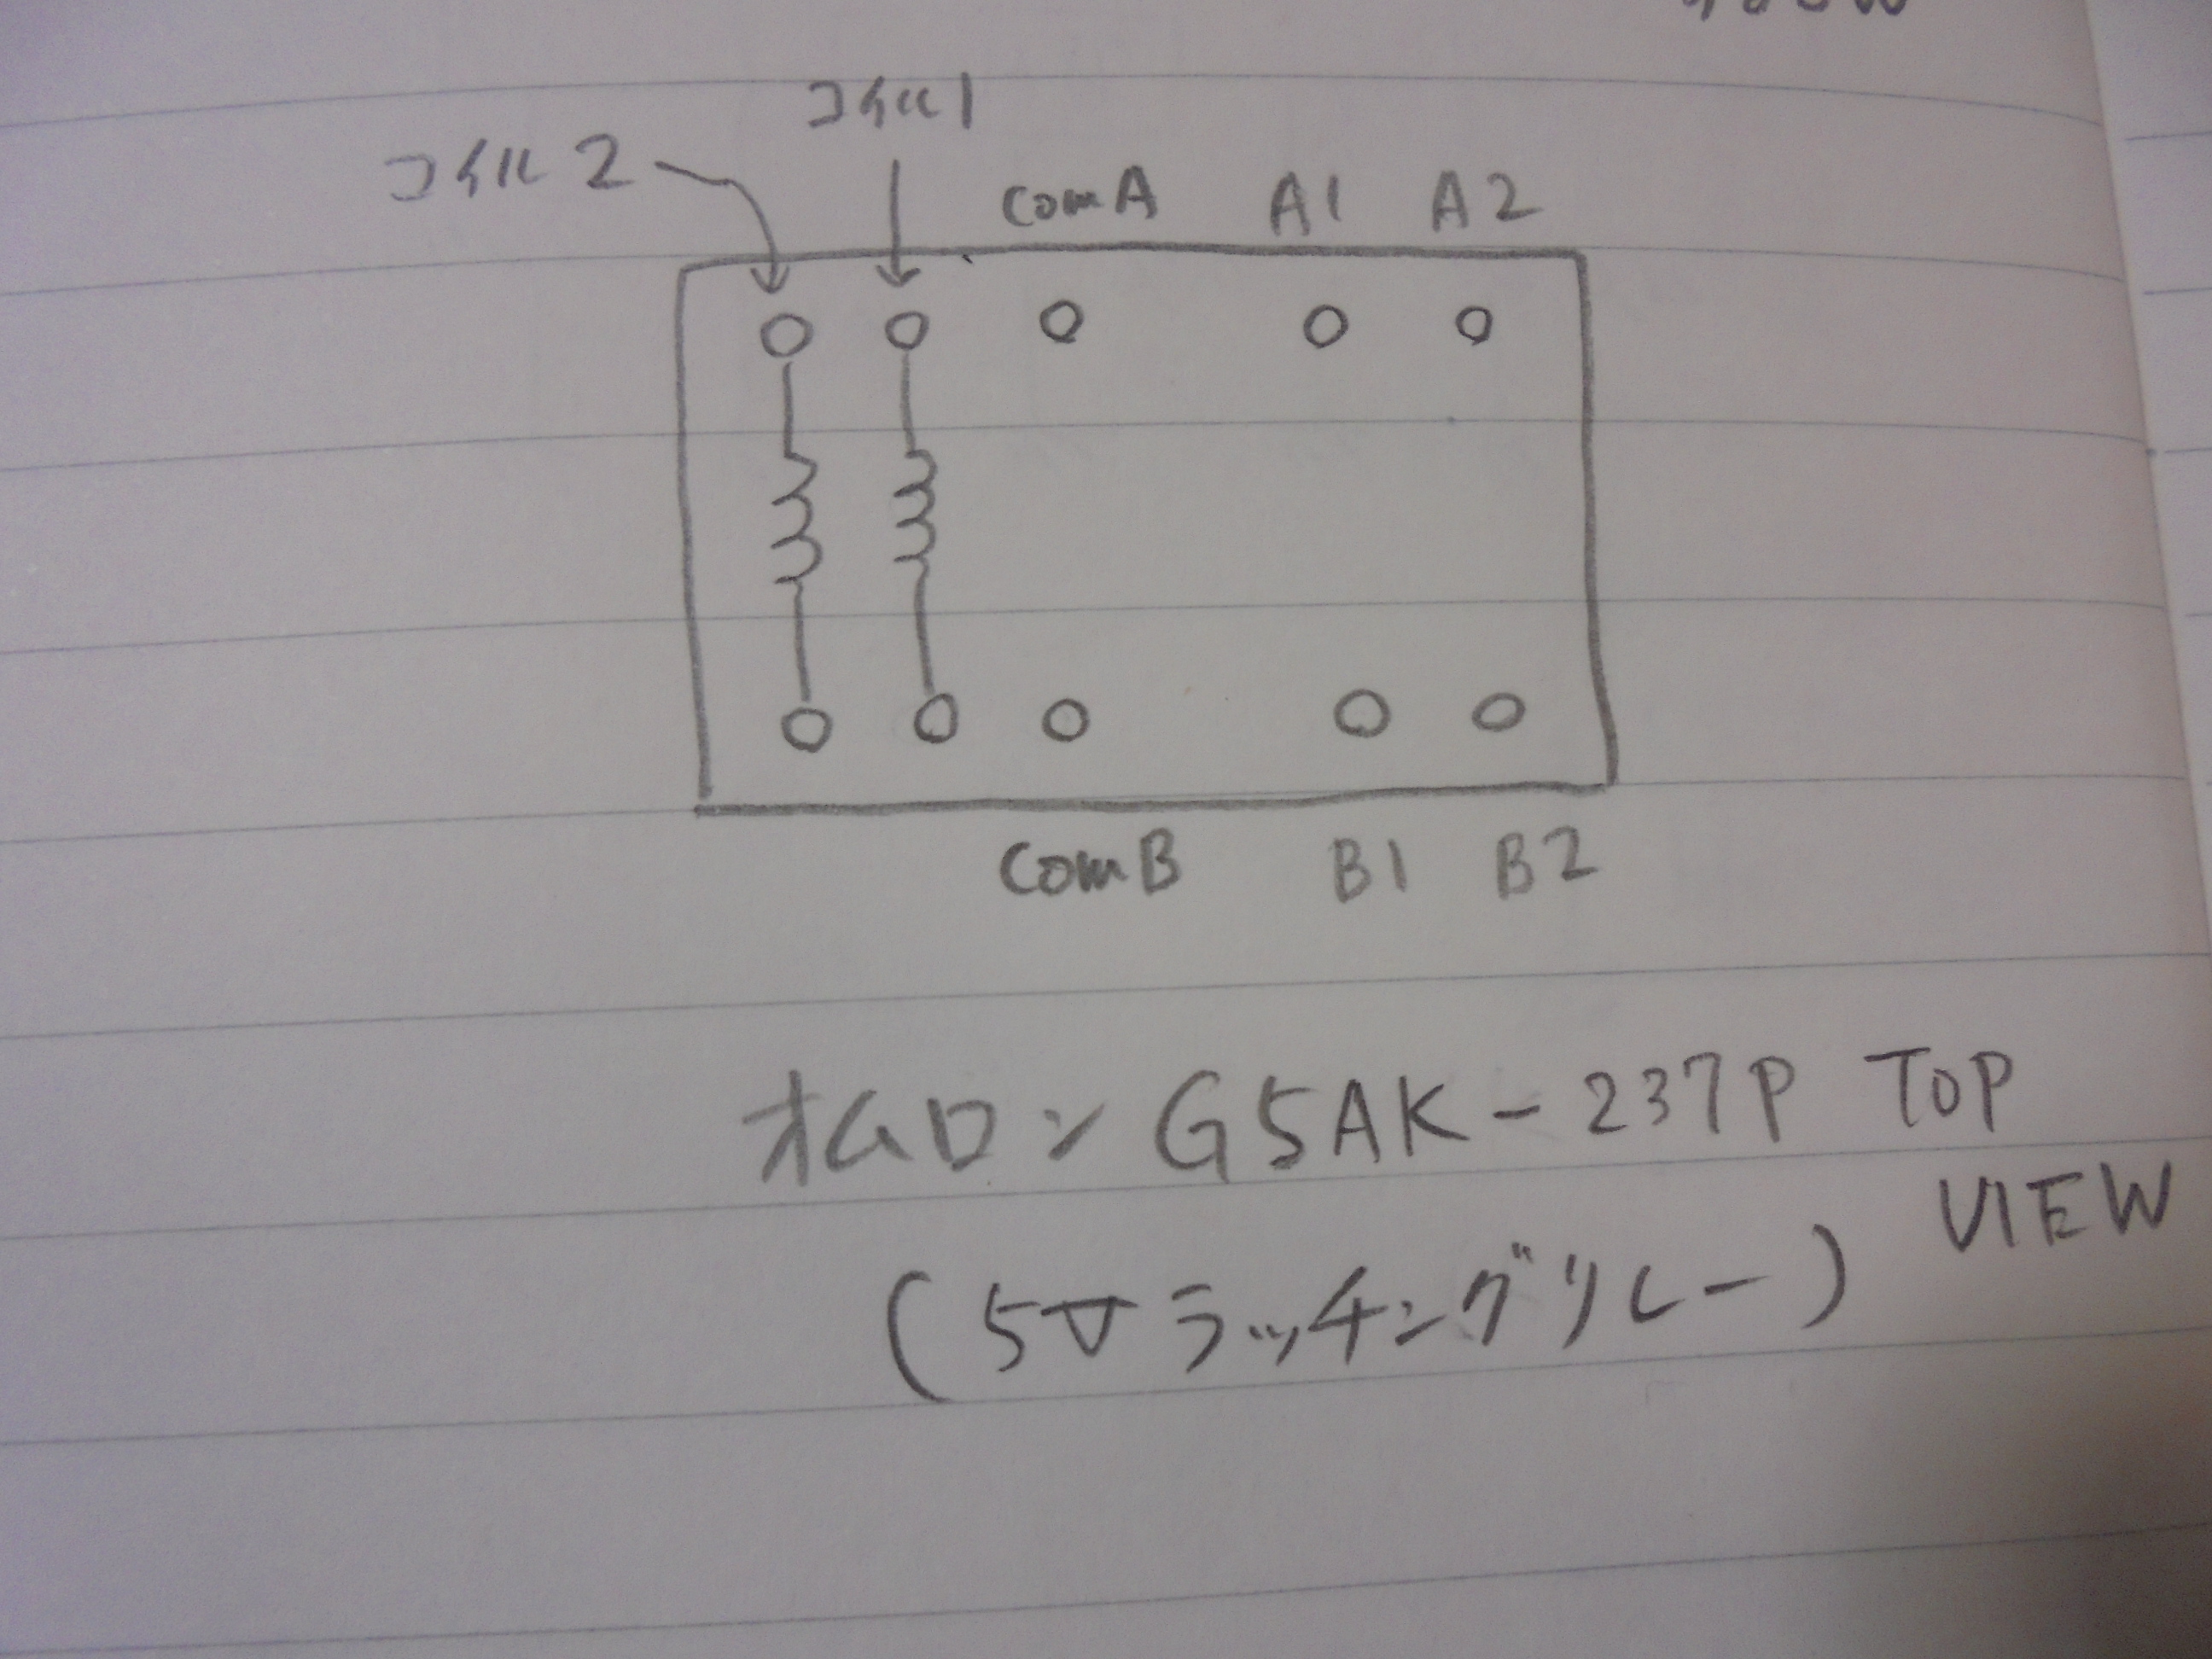 コイル1
コイル2
comA A1 A2
comB B1 B2
オムロン G5AK-237P TOP
VIEW
(5Vラッチングリレー)